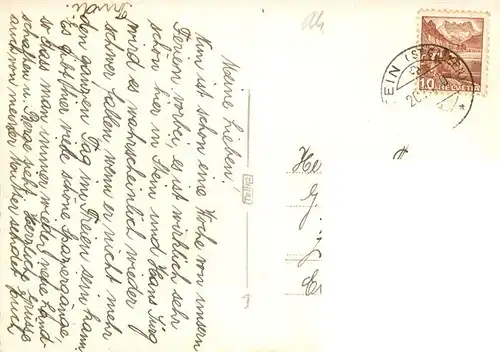 Meine Lieben!
Nun ist schon eine Woche von unsern
Ferien vorbei, es ist wirklich sehr
schön hier in Stein und Hans Jürg
wird es wahrscheinlich wieder
schwer fallen wenn er nicht mehr
den ganzen Tag im Freien sein kann.
Es gibt hier viele schöne Spaziergänge,
so dass man immer wieder neue Land-
schaften u. Berge sieht. Herzliche Grüsse
auch von meiner Mutter sendet Euch
Trudi.
STEIN (ST
20.
10 HELVETIA